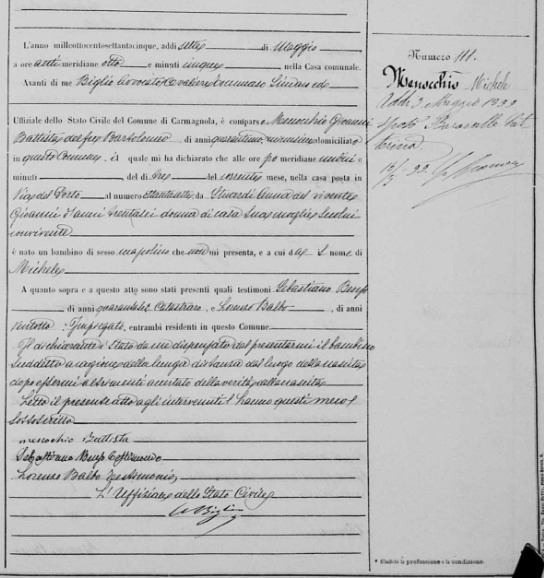 L'anno millottocentosettantacinque, addì sette di Maggio
a ore anti meridiane otto e minuti cinque, nella Casa comunale.
Avanti di me Biglia Avvocato Sindaco
Uffiziale dello Stato Civile del Comune di Carmagnola, è comparso Menocchio Giovanni
Battista del fu Bartolomeo di anni domiciliato
in questo Comune, il quale mi ha dichiarato che alle ore po meridiane undici e
minuti del dì tre del corrente mese, nella casa posta in
Via del Porto al numero da Anna del vivente
Giovanni d'anni trentasei donna di casa sua moglie seco lui
convivente
è nato un bambino di sesso mascolino che non mi presenta, e a cui dà il nome di
Michele
A quanto sopra e a questo atto sono stati presenti quali testimoni Sebastiano
di anni quarantadue, e Lorenzo Balbo, di anni
ventotto Impiegato, entrambi residenti in questo Comune.
Il dichiarante è stato da me dispensato dal presentarmi il bambino
suddetto a cagione della lunga distanza dal luogo della nascita
dopo essermi altrimenti accertato della verità della nascita
Letto il presente atto agli intervenuti hanno questi meco
sottoscritto
Menochio Battista
Sebastiano Testimonio
Lorenzo Balbo Testimonio
L'Uffiziale dello Stato Civile
Biglia
Numero 111.
Menocchio Michele
Addì Maggio
sposò
* Si indichi la professione o la condizione.